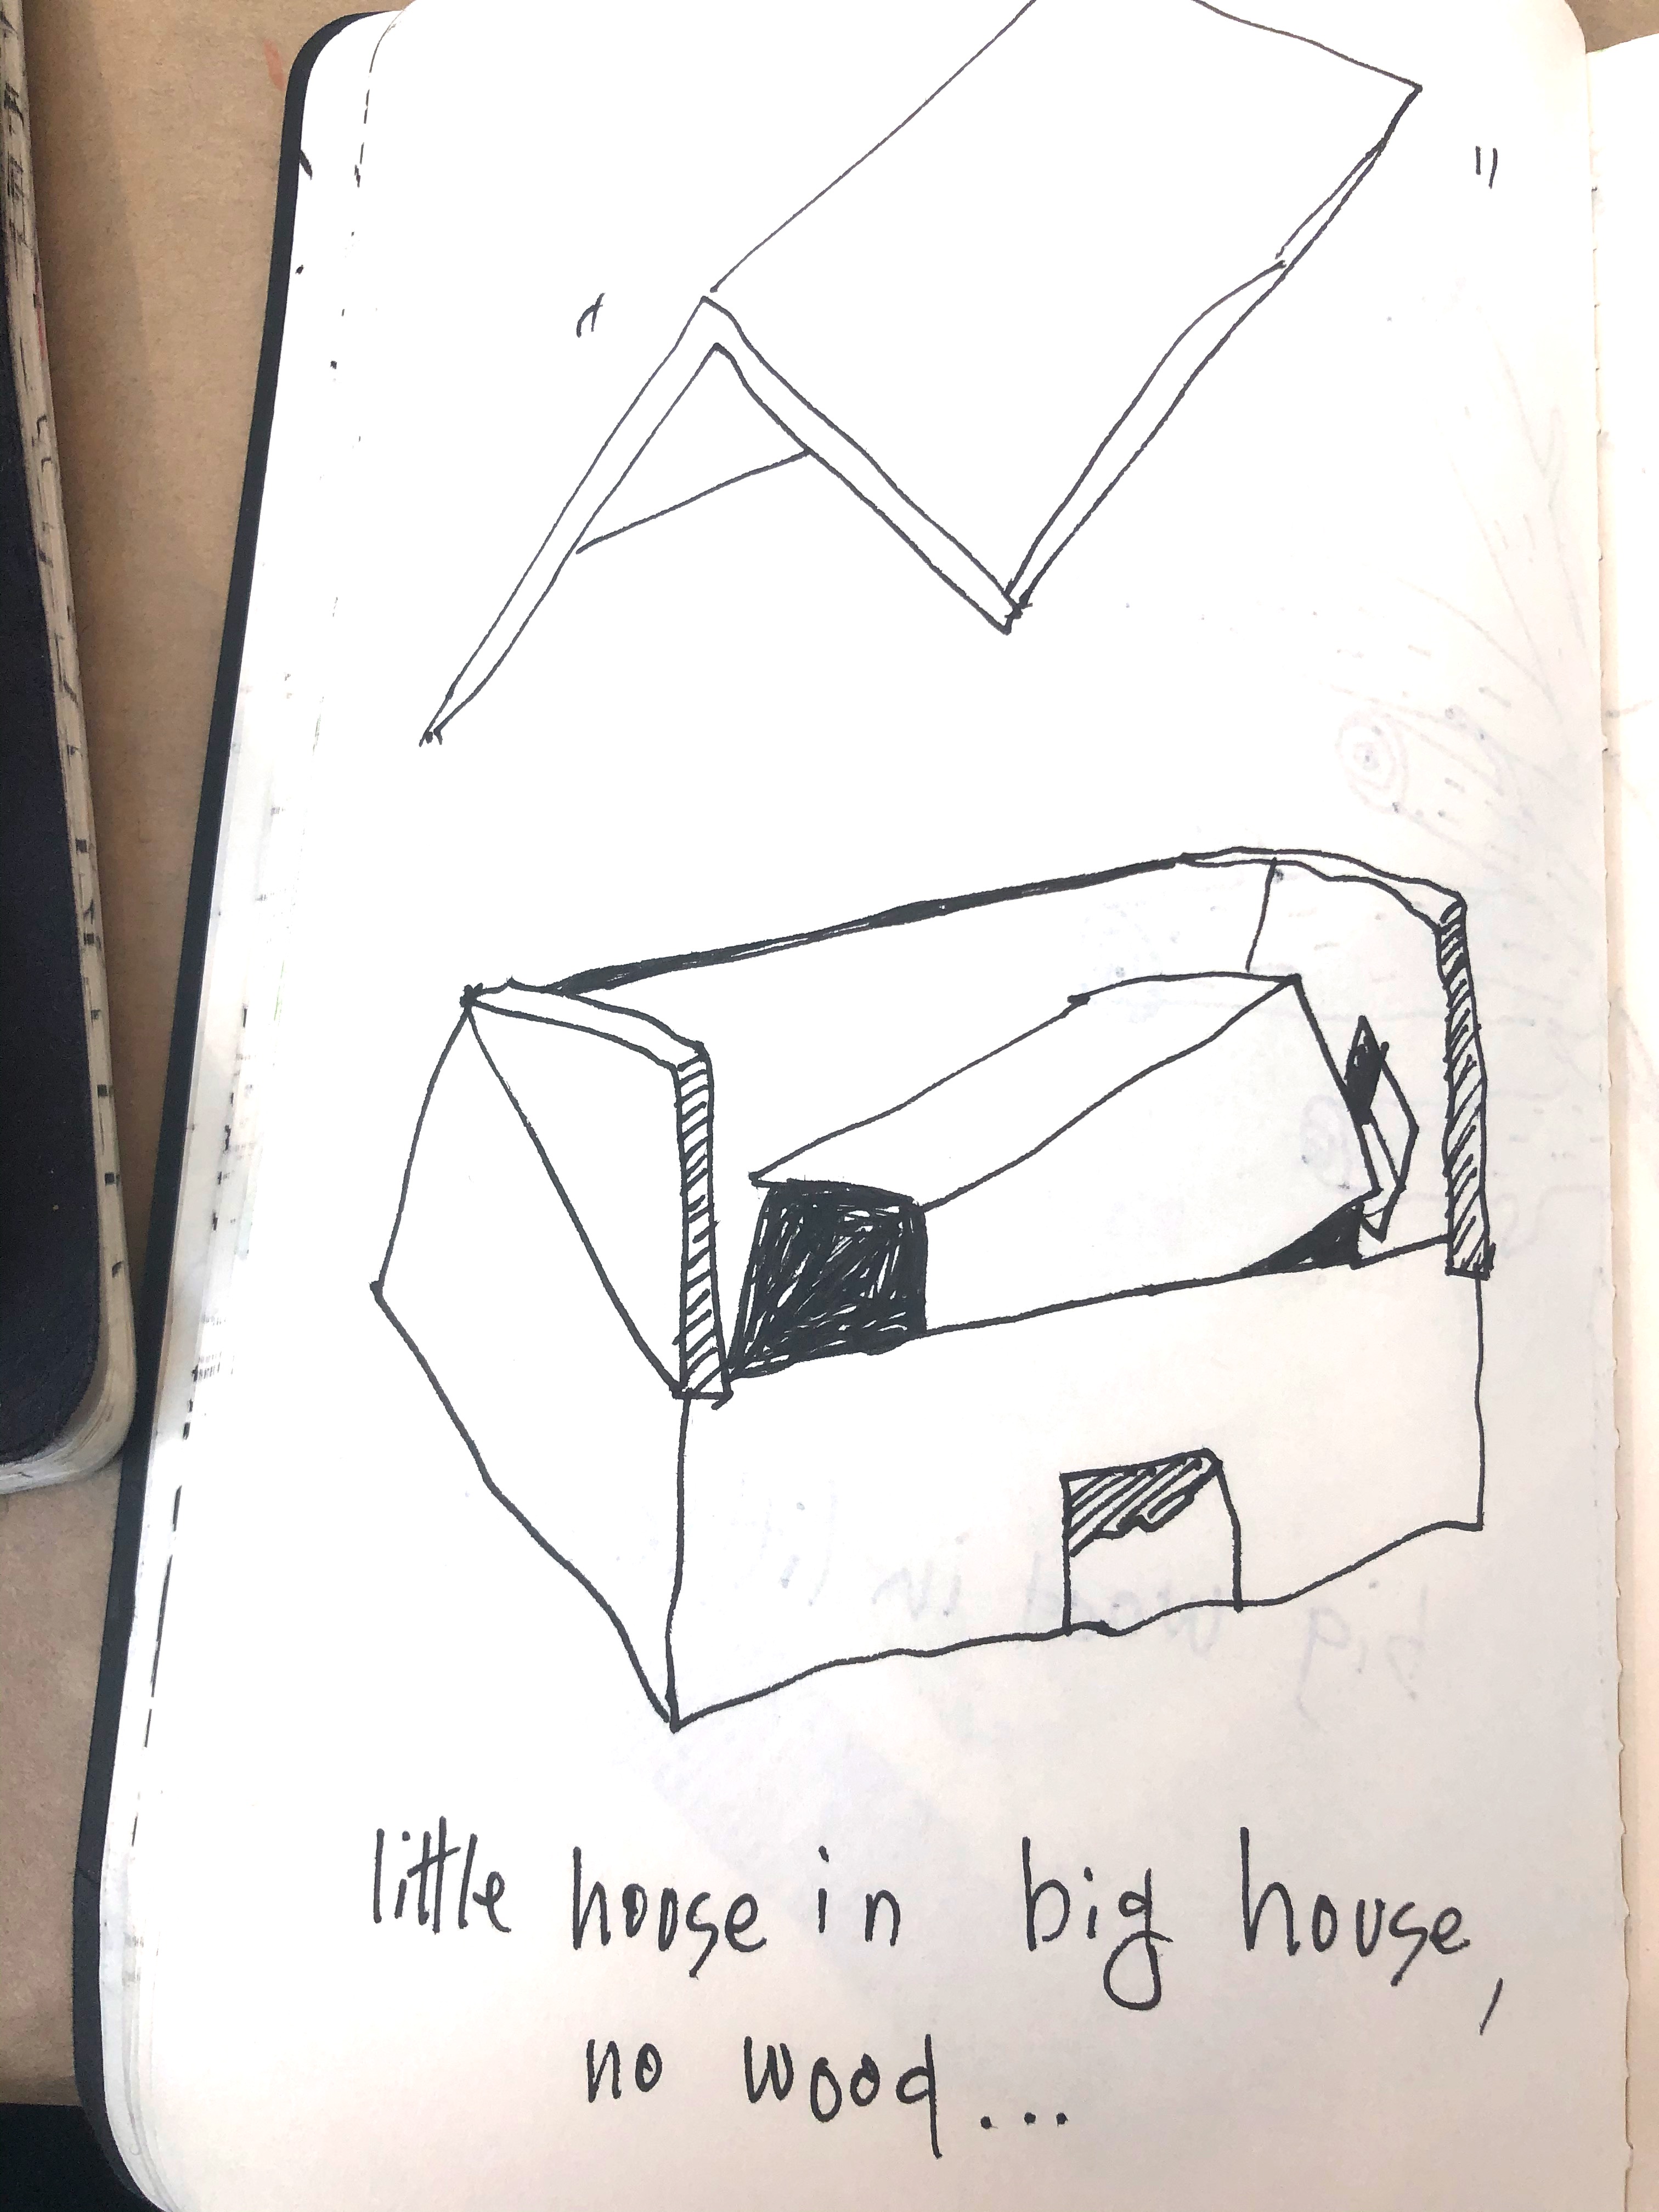 little hoose in big house,
no wood...